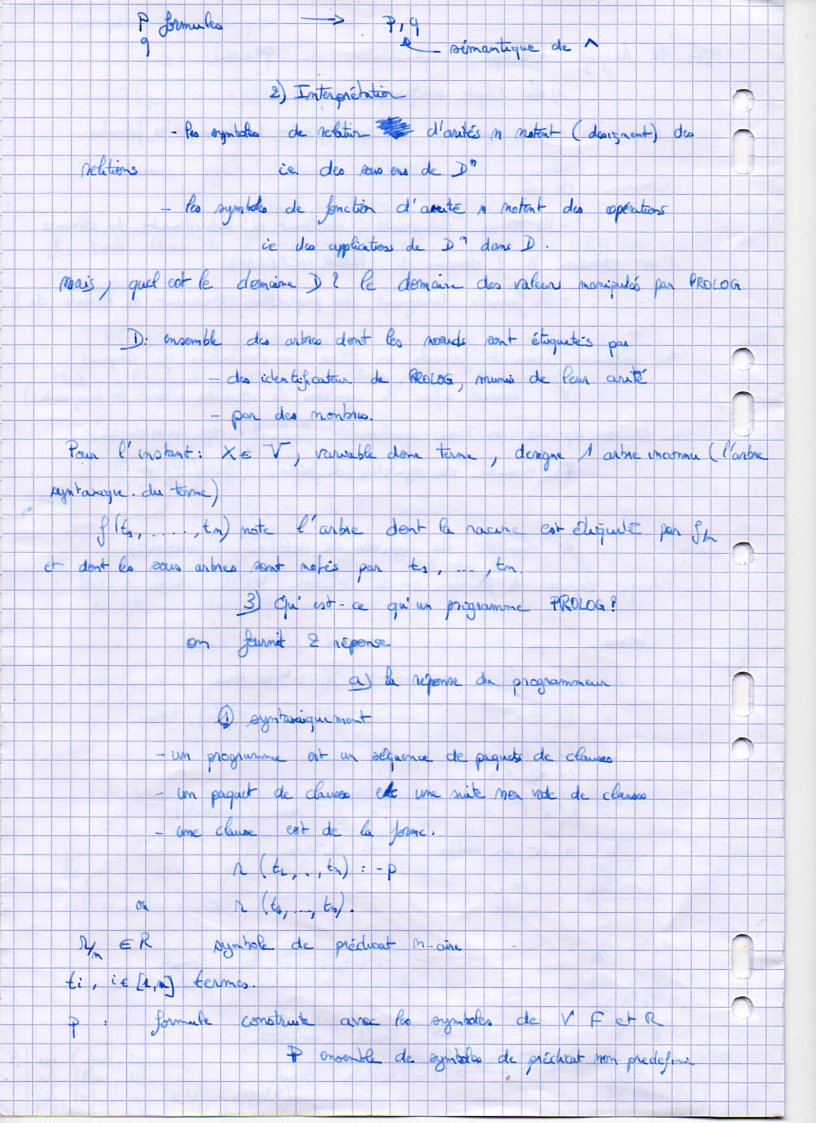 P formules → P, q
q sémantique de ∧
2) Interprétation
- les symboles de relation d'arités n notent (designent) des
relations ie des sous ens de Dⁿ
- les symboles de fonction d'arité n notent des opérations
ie des applications de Dⁿ dans D.
mais, quel est le domaine D? le domaine des valeurs manipulés par PROLOG
D: ensemble des arbres dont les noeuds sont étiquetés par
- des identificateur de PROLOG, munis de leur arité
- par des nombres.
Pour l'instant: X ∈ V, variable donc terme, designe 1 arbre inconnu (l'arbre
syntaxique du terme)
f(t₁, ....., tn) note l'arbre dont la racine est étiqueté par f/n
et dont les sous arbres sont notés par t₁, ..., tn.
3) Qu'est-ce qu'un programme PROLOG?
on fournit 2 réponse
a) la réponse du programmeur
① syntaxiquement
- un programme est un séquence de paquets de clauses
- un paquet de clauses est une suite non vide de clauses
- une clause est de la forme.
r (t₁, .., tn) :- p
ou r (t₁, ..., tn).
r/n ∈ R symbole de prédicat n-aire
ti, i ∈ [1,n] termes.
p : formule construite avec les symboles de V F et R
P ensemble de symboles de prédicat non predefini